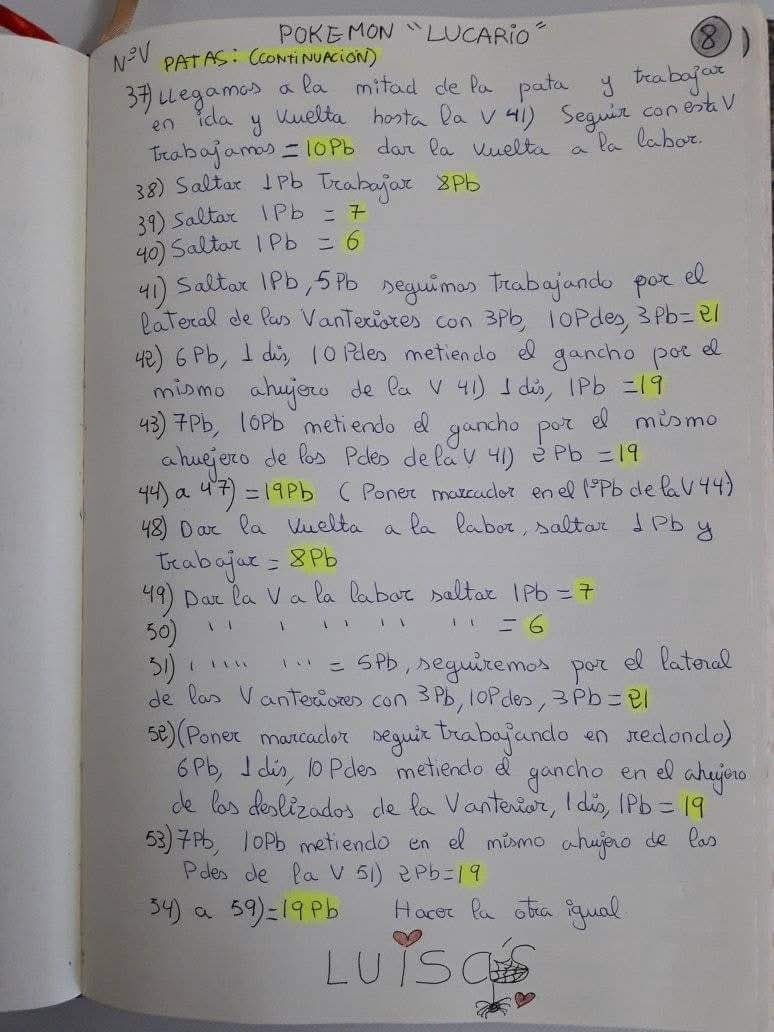 POKEMON "LUCARIO"
8
NºV PATAS: (CONTINUACIÓN)
37) LLegamos a la mitad de la pata y trabajar
en ida y vuelta hasta la V 41) Seguir con esta V
trabajamos = 10Pb dar la vuelta a la labor.
38) Saltar 1Pb trabajar 8Pb
39) Saltar 1Pb = 7
40) Saltar 1Pb = 6
41) Saltar 1Pb, 5Pb seguimos trabajando por el
lateral de las V anteriores con 3Pb, 10Pdes, 3Pb = 21
42) 6Pb, 1 dis, 10 Pdes metiendo el gancho por el
mismo ahujero de la V 41) 1 dis, 1Pb = 19
43) 7Pb, 10Pb metiendo el gancho por el mismo
ahuejero de los Pdes de la V 41) 2 Pb = 19
44) a 47) = 19Pb ( Poner marcador en el 1ºPb de la V 44)
48) Dar la vuelta a la labor, saltar 1 Pb y
trabajar = 8Pb
49) Dar la V a la labor saltar 1Pb = 7
50) ' ' ' ' ' ' ' ' ' = 6
51) ' ' ' ' ' ' ' ' = 5Pb, seguiremos por el lateral
de las V anteriores con 3Pb, 10Pdes, 3Pb = 21
52) (Poner marcador seguir trabajando en redondo)
6Pb, 1 dis, 10 Pdes metiendo el gancho en el ahujero
de los deslizados de la V anterior, 1 dis, 1Pb = 19
53) 7Pb, 10Pb metiendo en el mismo ahujero de las
Pdes de la V 51) 2Pb = 19
54) a 59) = 19Pb Hacer la otra igual
LUISA'S